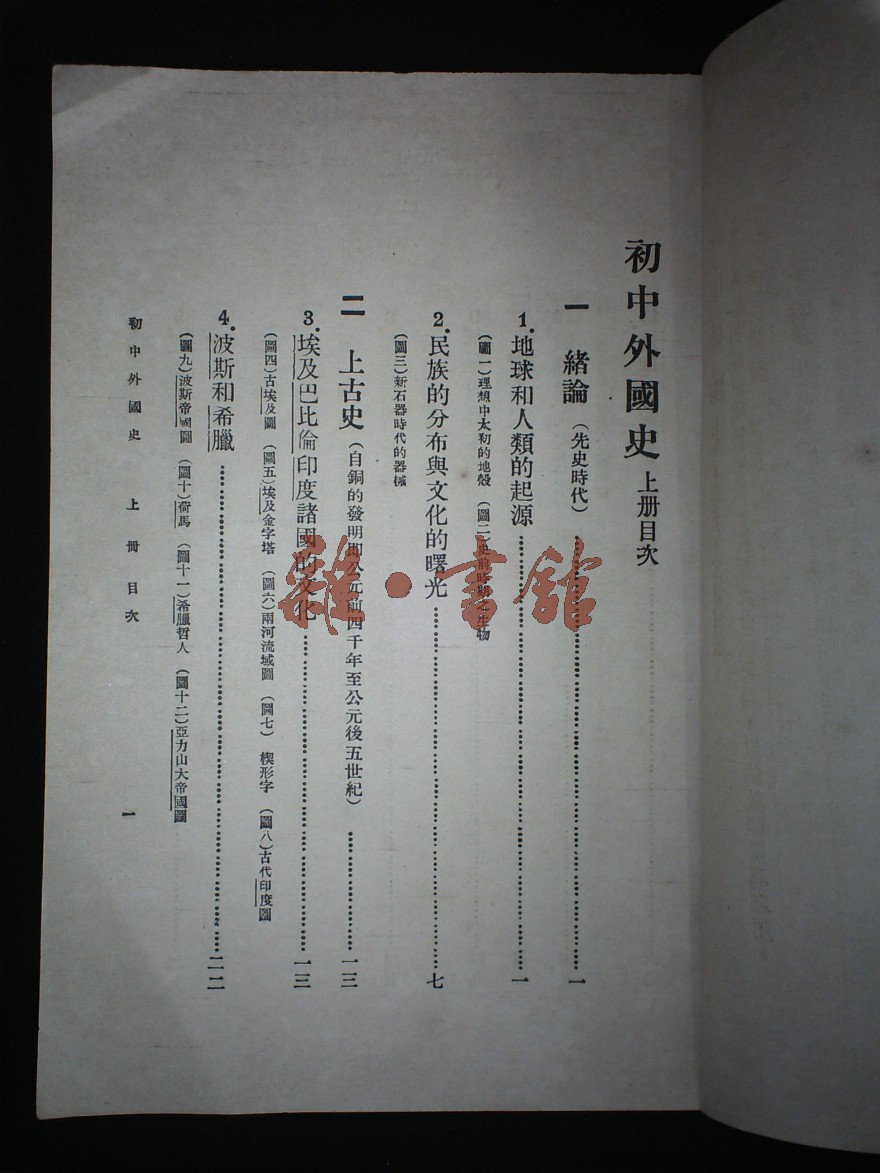 初中外國史 上册目次
一 緒論（先史時代）……一
1.地球和人類的起源……一
（圖一）理想中太初的地殼 （圖二）史前時期之生物
2.民族的分布與文化的曙光……七
（圖三）新石器時代的器械
二 上古史（自銅的發明即公元前四千年至公元後五世紀）……一三
3.埃及巴比倫印度諸國的文化……一三
（圖四）古埃及圖 （圖五）埃及金字塔 （圖六）兩河流域圖 （圖七）楔形字 （圖八）古代印度圖
4.波斯和希臘……二二
（圖九）波斯帝國圖 （圖十）荷馬 （圖十一）希臘哲人 （圖十二）亞力山大帝國圖
初中外國史 上冊目次 一
雜·書館